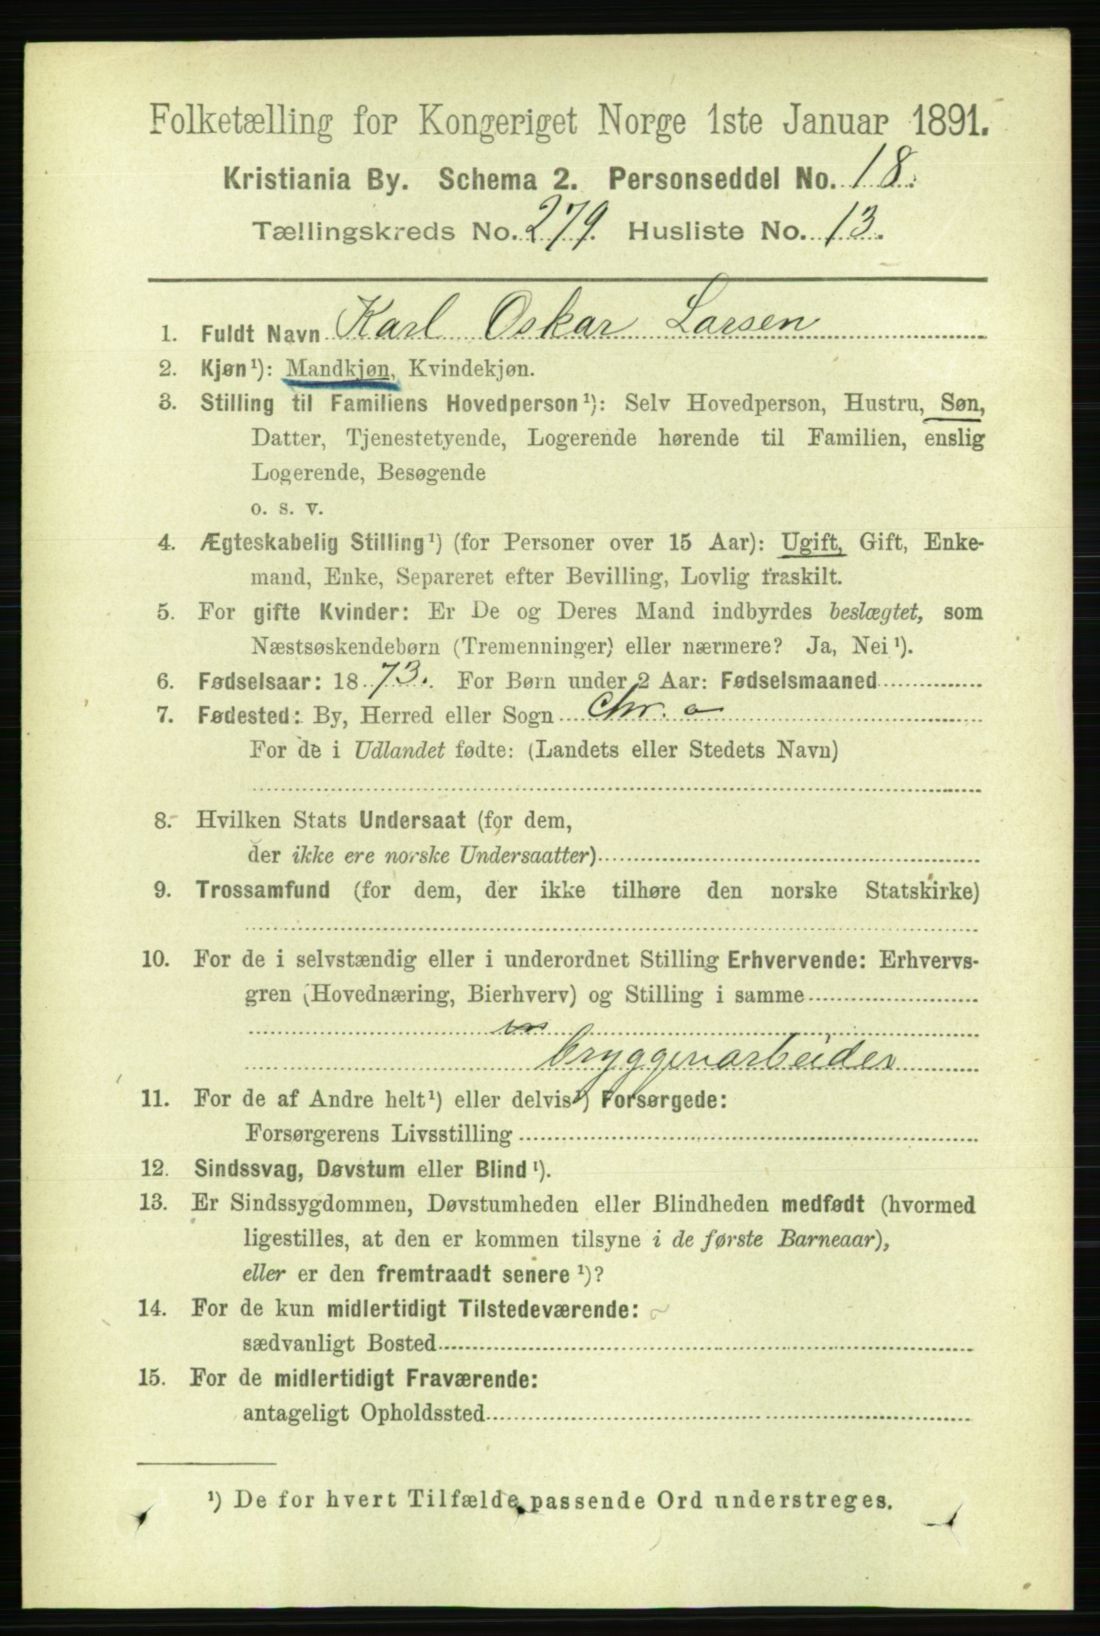 Folketælling for Kongeriget Norge 1ste Januar 1891.
Kristiania By. Schema 2. Personseddel No. 18.
Tællingskreds No. 279. Husliste No. 13.
1. Fuldt Navn Karl Oskar Larsen
2. Kjøn¹): Mandkjøn, Kvindekjøn.
3. Stilling til Familiens Hovedperson¹): Selv Hovedperson, Hustru, Søn,
Datter, Tjenestetyende, Logerende hørende til Familien, enslig
Logerende, Besøgende
o. s. v.
4. Ægteskabelig Stilling¹) (for Personer over 15 Aar): Ugift, Gift, Enke-
mand, Enke, Separeret efter Bevilling, Lovlig fraskilt.
5. For gifte Kvinder: Er De og Deres Mand indbyrdes beslægtet, som
Næstsøskendebørn (Tremenninger) eller nærmere? Ja, Nei¹).
6. Fødselsaar: 1873. For Børn under 2 Aar: Fødselsmaaned
7. Fødested: By, Herred eller Sogn Chr. a
For de i Udlandet fødte: (Landets eller Stedets Navn)
8. Hvilken Stats Undersaat (for dem,
der ikke ere norske Undersaatter)
9. Trossamfund (for dem, der ikke tilhøre den norske Statskirke)
10. For de i selvstændig eller i underordnet Stilling Erhvervende: Erhvervs-
gren (Hovednæring, Bierhverv) og Stilling i samme
bryggeriarbeider
11. For de af Andre helt¹) eller delvis¹) Forsørgede:
Forsørgerens Livsstilling
12. Sindssvag, Døvstum eller Blind¹).
13. Er Sindssygdommen, Døvstumheden eller Blindheden medfødt (hvormed
ligestilles, at den er kommen tilsyne i de første Barneaar),
eller er den fremtraadt senere¹)?
14. For de kun midlertidigt Tilstedeværende:
sædvanligt Bosted
15. For de midlertidigt Fraværende:
antageligt Opholdssted
¹) De for hvert Tilfælde passende Ord understreges.